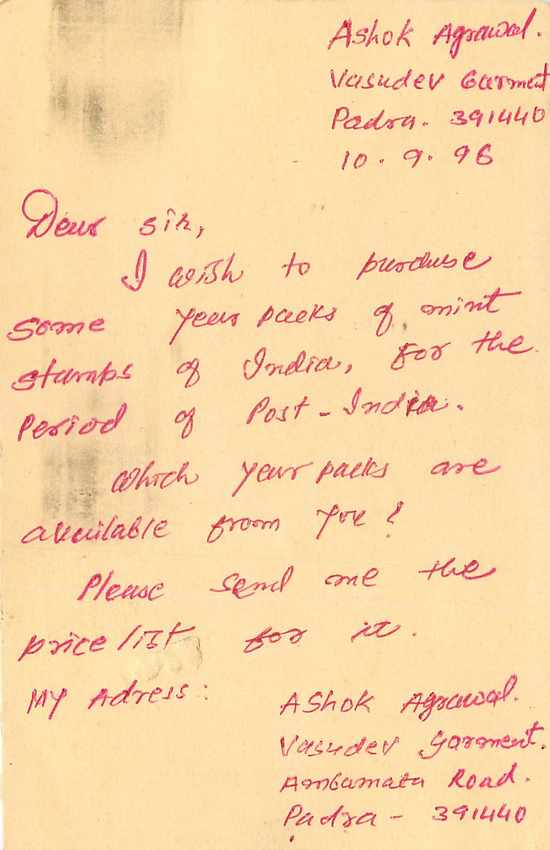 Ashok Agrawal.
Vasudev Garment
Padra. 391440
10.9.96
Dear Sir,
I wish to purchase
some year packs of mint
stamps of India, for the
period of Post-India.
which year packs are
available from you?
Please send me the
price list for it.
My Adress:
Ashok Agrawal.
Vasudev Garment.
Ambamata Road.
Padra - 391440